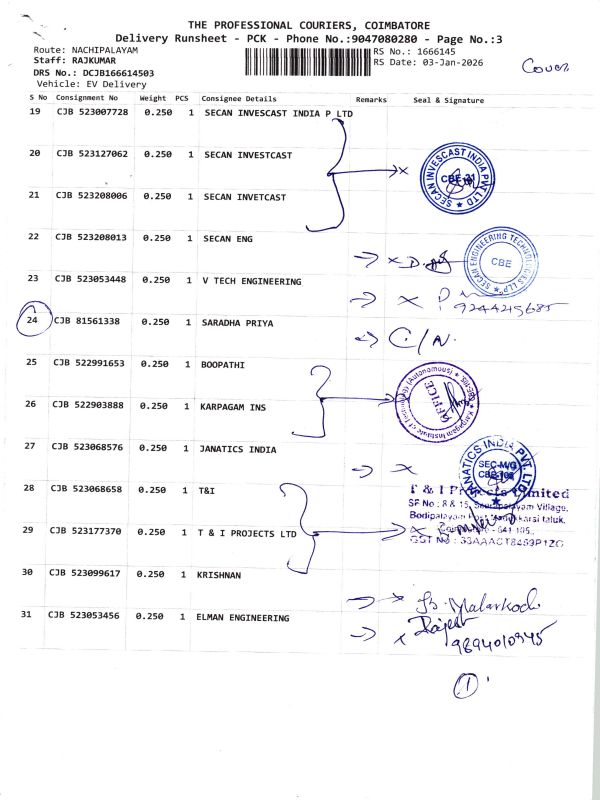 THE PROFESSIONAL COURIERS, COIMBATORE
Delivery Runsheet - PCK - Phone No.:9047080280 - Page No.:3
Route: NACHIPALAYAM RS No.: 1666145
Staff: RAJKUMAR RS Date: 03-Jan-2026
DRS No.: DCJB166614503
Vehicle: EV Delivery
Cover
S No Consignment No Weight PCS Consignee Details Remarks Seal & Signature
19 CJB 523007728 0.250 1 SECAN INVESCAST INDIA P LTD
20 CJB 523127062 0.250 1 SECAN INVESTCAST
SECAN INVESCAST INDIA PVT LTD
CBE-21
21 CJB 523208006 0.250 1 SECAN INVETCAST
22 CJB 523208013 0.250 1 SECAN ENG
SECAN ENGINEERING TECHNOLOGIES LLP
CBE
23 CJB 523053448 0.250 1 V TECH ENGINEERING
24 CJB 81561338 0.250 1 SARADHA PRIYA
C/N.
25 CJB 522991653 0.250 1 BOOPATHI
Karpagam Institute of Technology (Autonomous)
OFFICE
26 CJB 522903888 0.250 1 KARPAGAM INS
27 CJB 523068576 0.250 1 JANATICS INDIA
JANATICS INDIA PVT. LTD
28 CJB 523068658 0.250 1 T&I
T & I Projects Limited
SF No : 8 & 15, Village,
29 CJB 523177370 0.250 1 T & I PROJECTS LTD
GST No : 33AAACT8459P1ZG
30 CJB 523099617 0.250 1 KRISHNAN
31 CJB 523053456 0.250 1 ELMAN ENGINEERING
9894010945
1